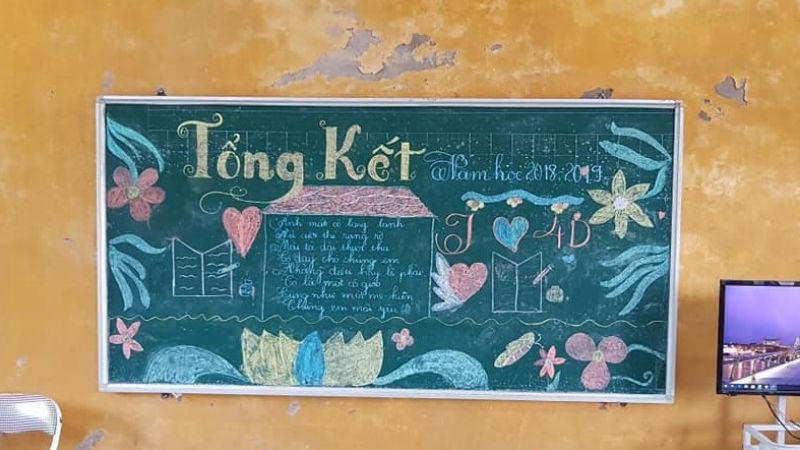 Tổng Kết Năm học 2018-2019
I 4D
Ánh mắt cô long lanh
Nụ cười thì rạng rỡ
Mái tóc dài thướt tha
Cô dạy cho chúng em
Những điều hay lẽ phải
Cô là một cô giáo
Cũng như một mẹ hiền
Chúng em mãi yêu